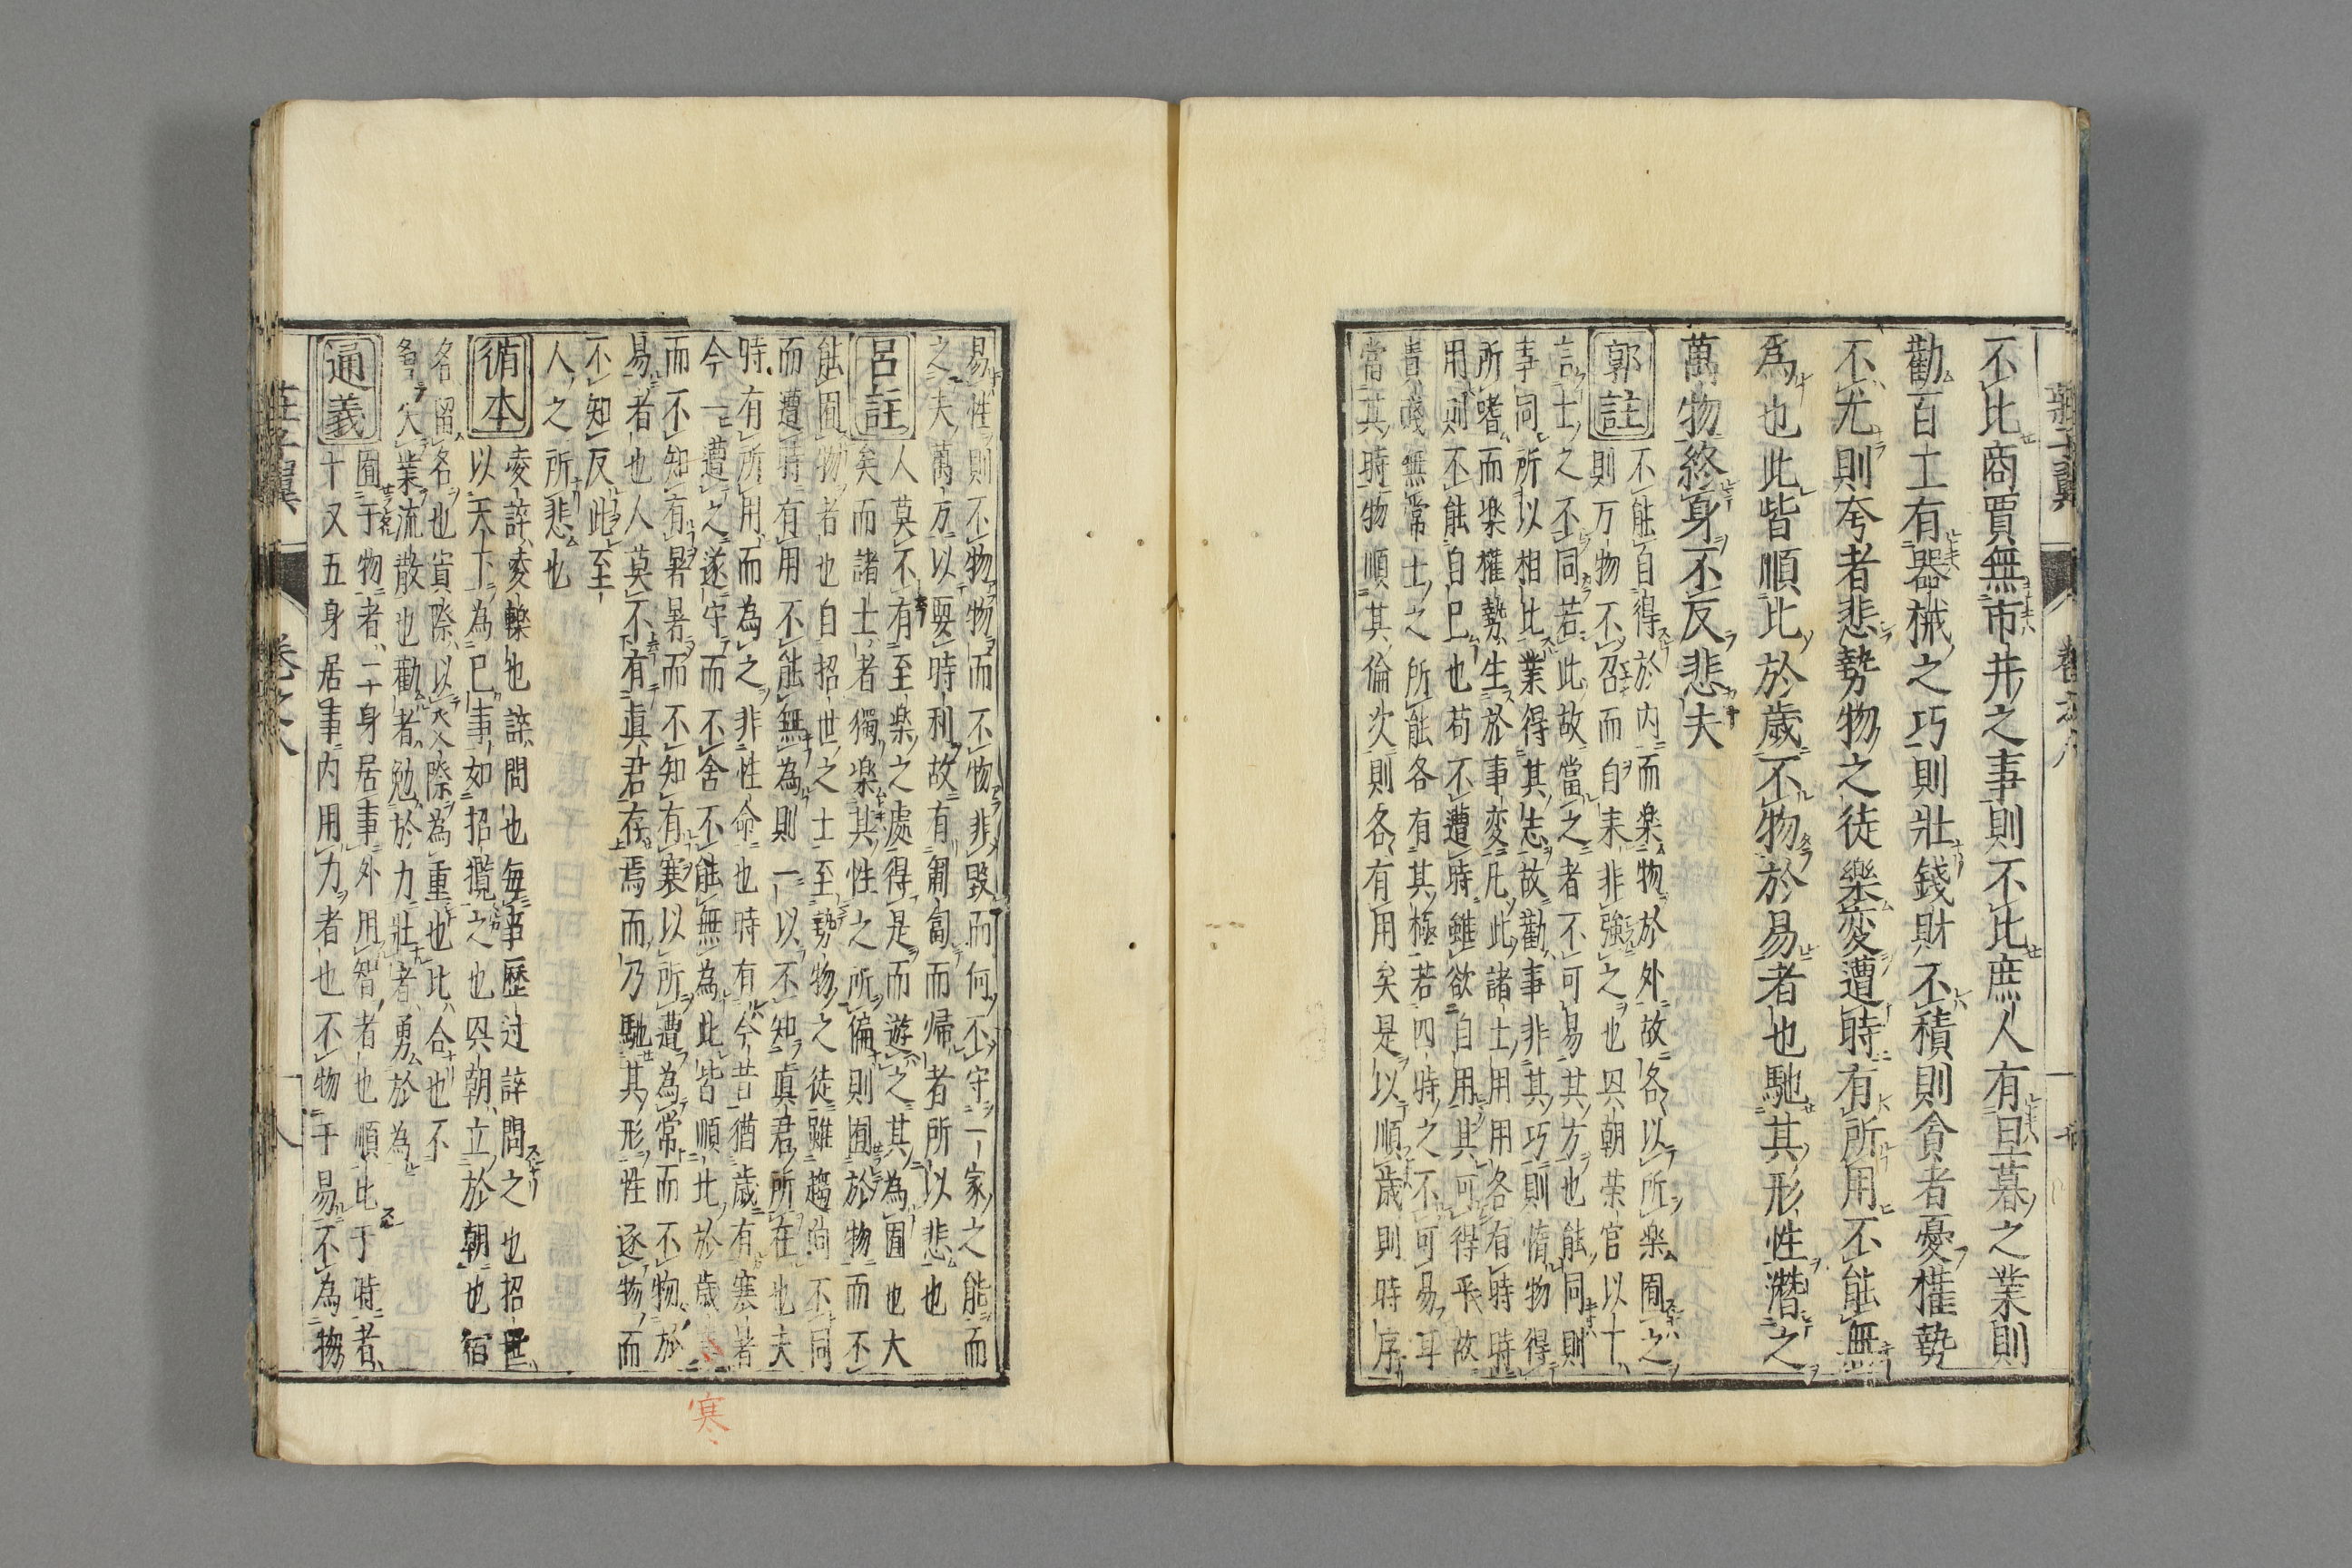 不比商賈無市井之事則不比庶人有旦暮之業則
勸百工有器械之巧則壯錢財不積則貪者憂權勢
不尤則夸者悲勢物之徒樂変遭時有所用不能無
爲也此皆順比於歲不物於易者也馳其形性潛之
萬物終身不反悲夫
郭註
不能自得於内而楽物於外故各以所楽囿之
則万物不召而自来非強之也呉朝荣官以十
言士之不同若此故當之者不可易其方也能同則
事同所以相比業得其志故勸事非其巧則惰物得
所嗜而楽權勢生於事変凡此諸士用各有時時
用則不能自已也苟不遭時雖欲自用其可得乎故
貴賤無常士之所能各有其極若四時之不可易耳
當其時物順其倫次則各有用矣是以順歲則時序
易性則不物物而不物非毀而何不守一家之能而
之夫萬方以要時利故有匍匐而帰者所以悲也
呂註
人莫不有至楽之處得是而遊之其為囿也大
矣而諸士者獨楽其性之所偏則囿於物而不
能囿物者也自招世之士至勢物之徒雖趨向不同
而遭時有用不能無為則一以不知真君所在也夫
時有所用而為之非性命也時有今昔猶歲有寒暑
今一遭之遂守而不舍不能無為此皆順比於歲
而不知有暑暑而不知有寒以所遭為常而不物於
易者也人莫不有真君存焉而乃馳其形性逐物而
不知反此至
人之所悲也
循本
凌誶凌轢也誶問也毎事歴过誶問之也招世
以天下為已事如招攬之也呉朝立於朝也宿
名留名也賓際以交際為重也比合也不
業流散也勸者勉於力壯者勇於為
囿于物者二十身居事外用智者也順比于時者
通義
十又五身居事内用力者也不物于易不為物
莊子翼
卷之八
寒